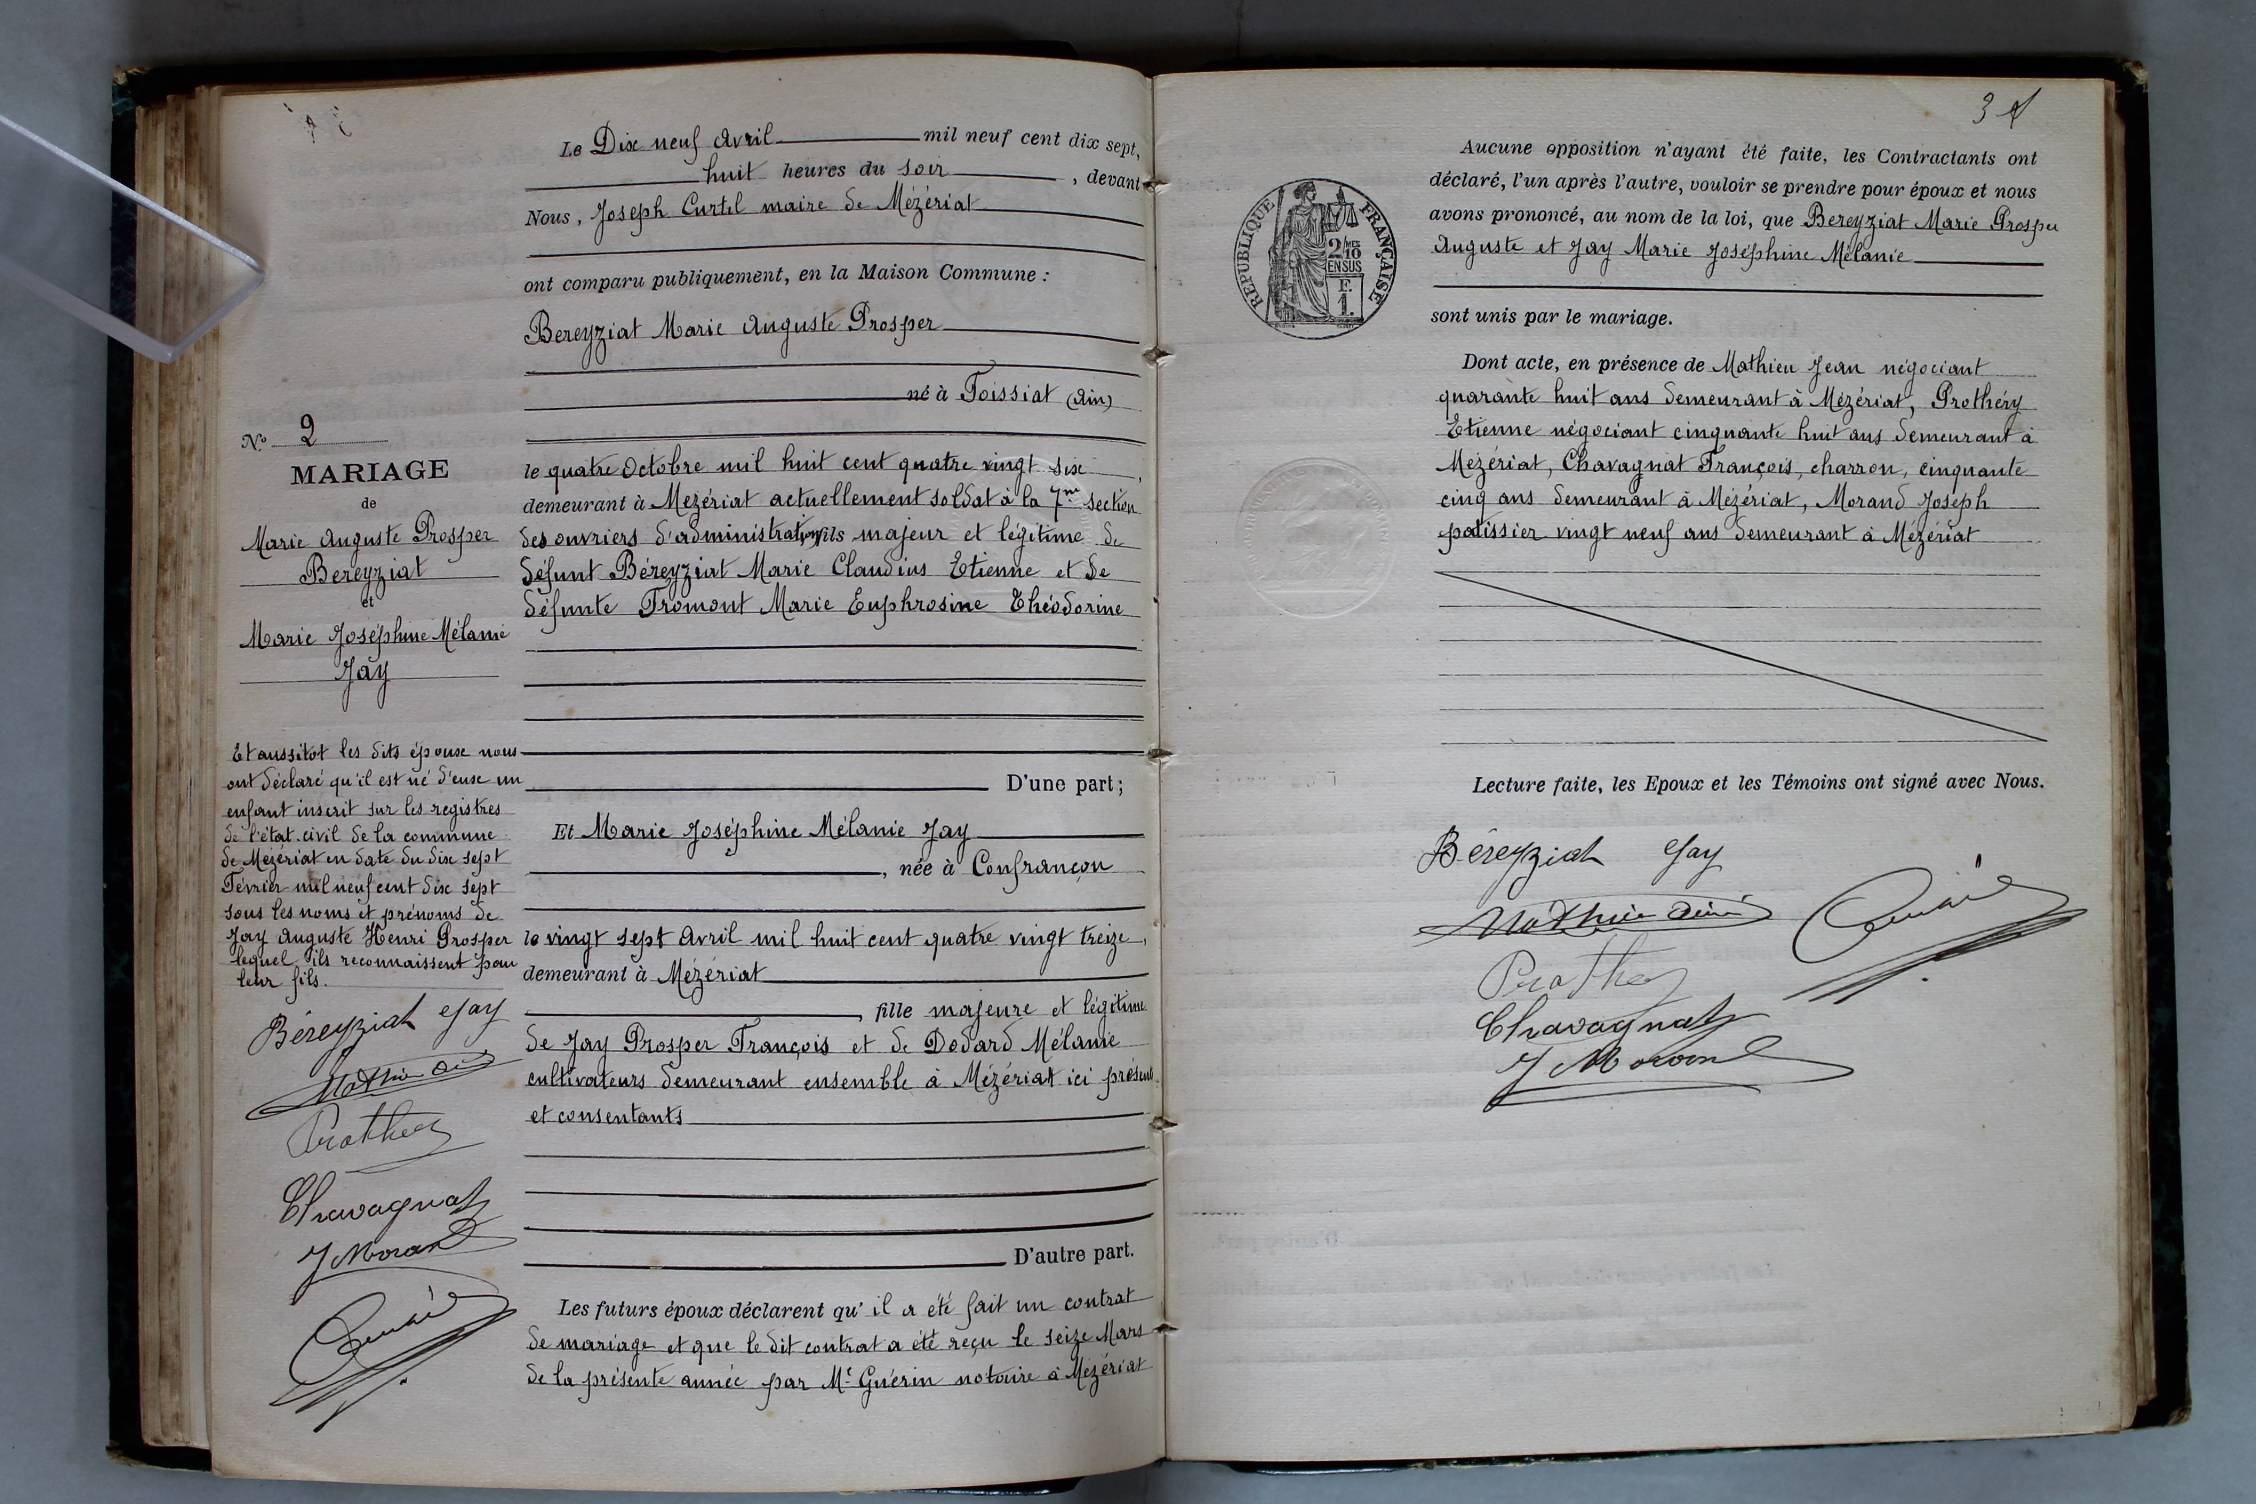 Le Dix neuf Avril mil neuf cent dix sept,
huit heures du soir, devant
Nous, Joseph Curtil maire de Mézériat
ont comparu publiquement, en la Maison Commune :
Bereyziat Marie Auguste Prosper
né à Foissiat (Ain)
le quatre Octobre mil huit cent quatre vingt six,
demeurant à Mezériat actuellement soldat à la 7me section
des ouvriers d'administration, fils majeur et légitime de
défunt Béreyziat Marie Claudius Etienne et de
défunte Fromont Marie Euphrosine Théodorine
D'une part;
Et Marie Joséphine Mélanie Jay
, née à Confrançon
le vingt sept Avril mil huit cent quatre vingt treize,
demeurant à Mézériat
, fille majeure et légitime
de Jay Prosper François et de Dodard Mélanie
cultivateurs demeurant ensemble à Mézériat ici présents
et consentants
D'autre part.
Les futurs époux déclarent qu'il a été fait un contrat
de mariage et que le dit contrat a été reçu le seize Mars
de la présente année par Me Guérin notaire à Mézériat
No 2
MARIAGE
de
Marie Auguste Prosper
Bereyziat
et
Marie Joséphine Mélanie
Jay
Et aussitot les dits époux nous
ont déclaré qu'il est né d'eux un
enfant inscrit sur les registres
de l'état civil de la commune
de Mézériat en date du dix sept
Février mil neuf cent dix sept
sous les noms et prénoms de
Jay Auguste Henri Prosper
lequel ils reconnaissent pour
leur fils.
Béreyziat Jay
Mathieu
Prothery
Chavagnat
J Morand
3
Aucune opposition n'ayant été faite, les Contractants ont
déclaré, l'un après l'autre, vouloir se prendre pour époux et nous
avons prononcé, au nom de la loi, que Bereyziat Marie Prosper
Auguste et Jay Marie Joséphine Mélanie
sont unis par le mariage.
RÉPUBLIQUE FRANÇAISE
2/MES
10
EN SUS
F.
1.
Dont acte, en présence de Mathieu Jean négociant
quarante huit ans demeurant à Mézériat, Prothéry
Etienne négociant cinquante huit ans demeurant à
Mezériat, Chavagnat François, charron, cinquante
cinq ans demeurant à Mézériat, Morand Joseph
patissier vingt neuf ans demeurant à Mézériat
Lecture faite, les Epoux et les Témoins ont signé avec Nous.
Béreyziat Jay
Mathieu
Prothery
Chavagnat
J Morand